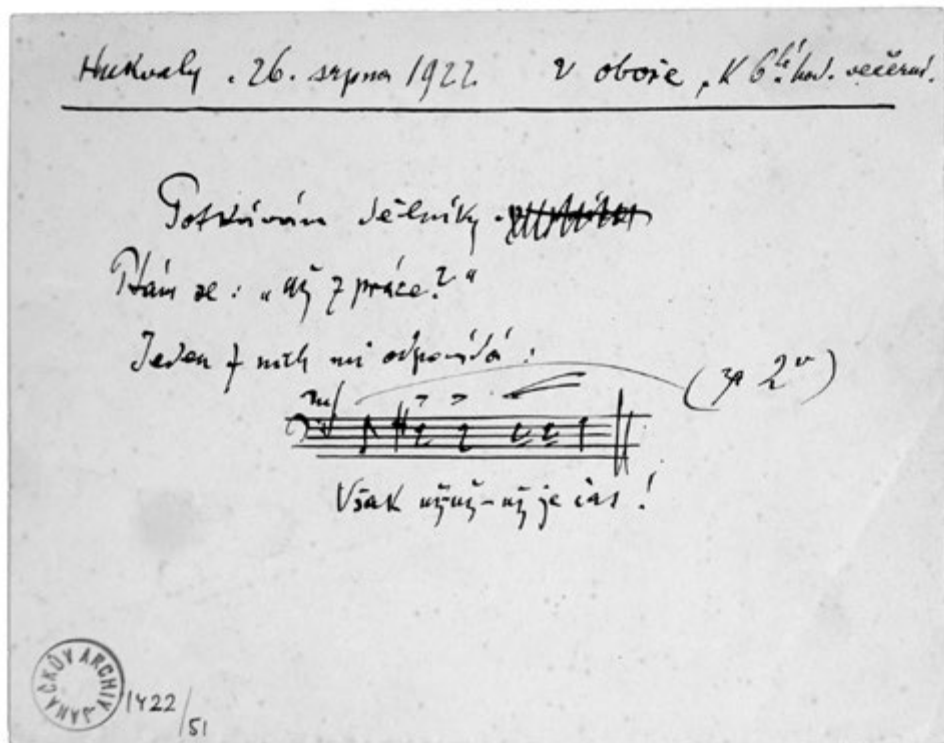 Hukvaly . 26. srpna 1922. V oboře , K 6té hod. večerní.
Potkávám dělníky.
Ptám se : „už z práce?“
Jeden z nich mi odpovídá :
(za 2")
Však užuž-už je čas !
JANÁČKŮV ARCHIV
1422/51